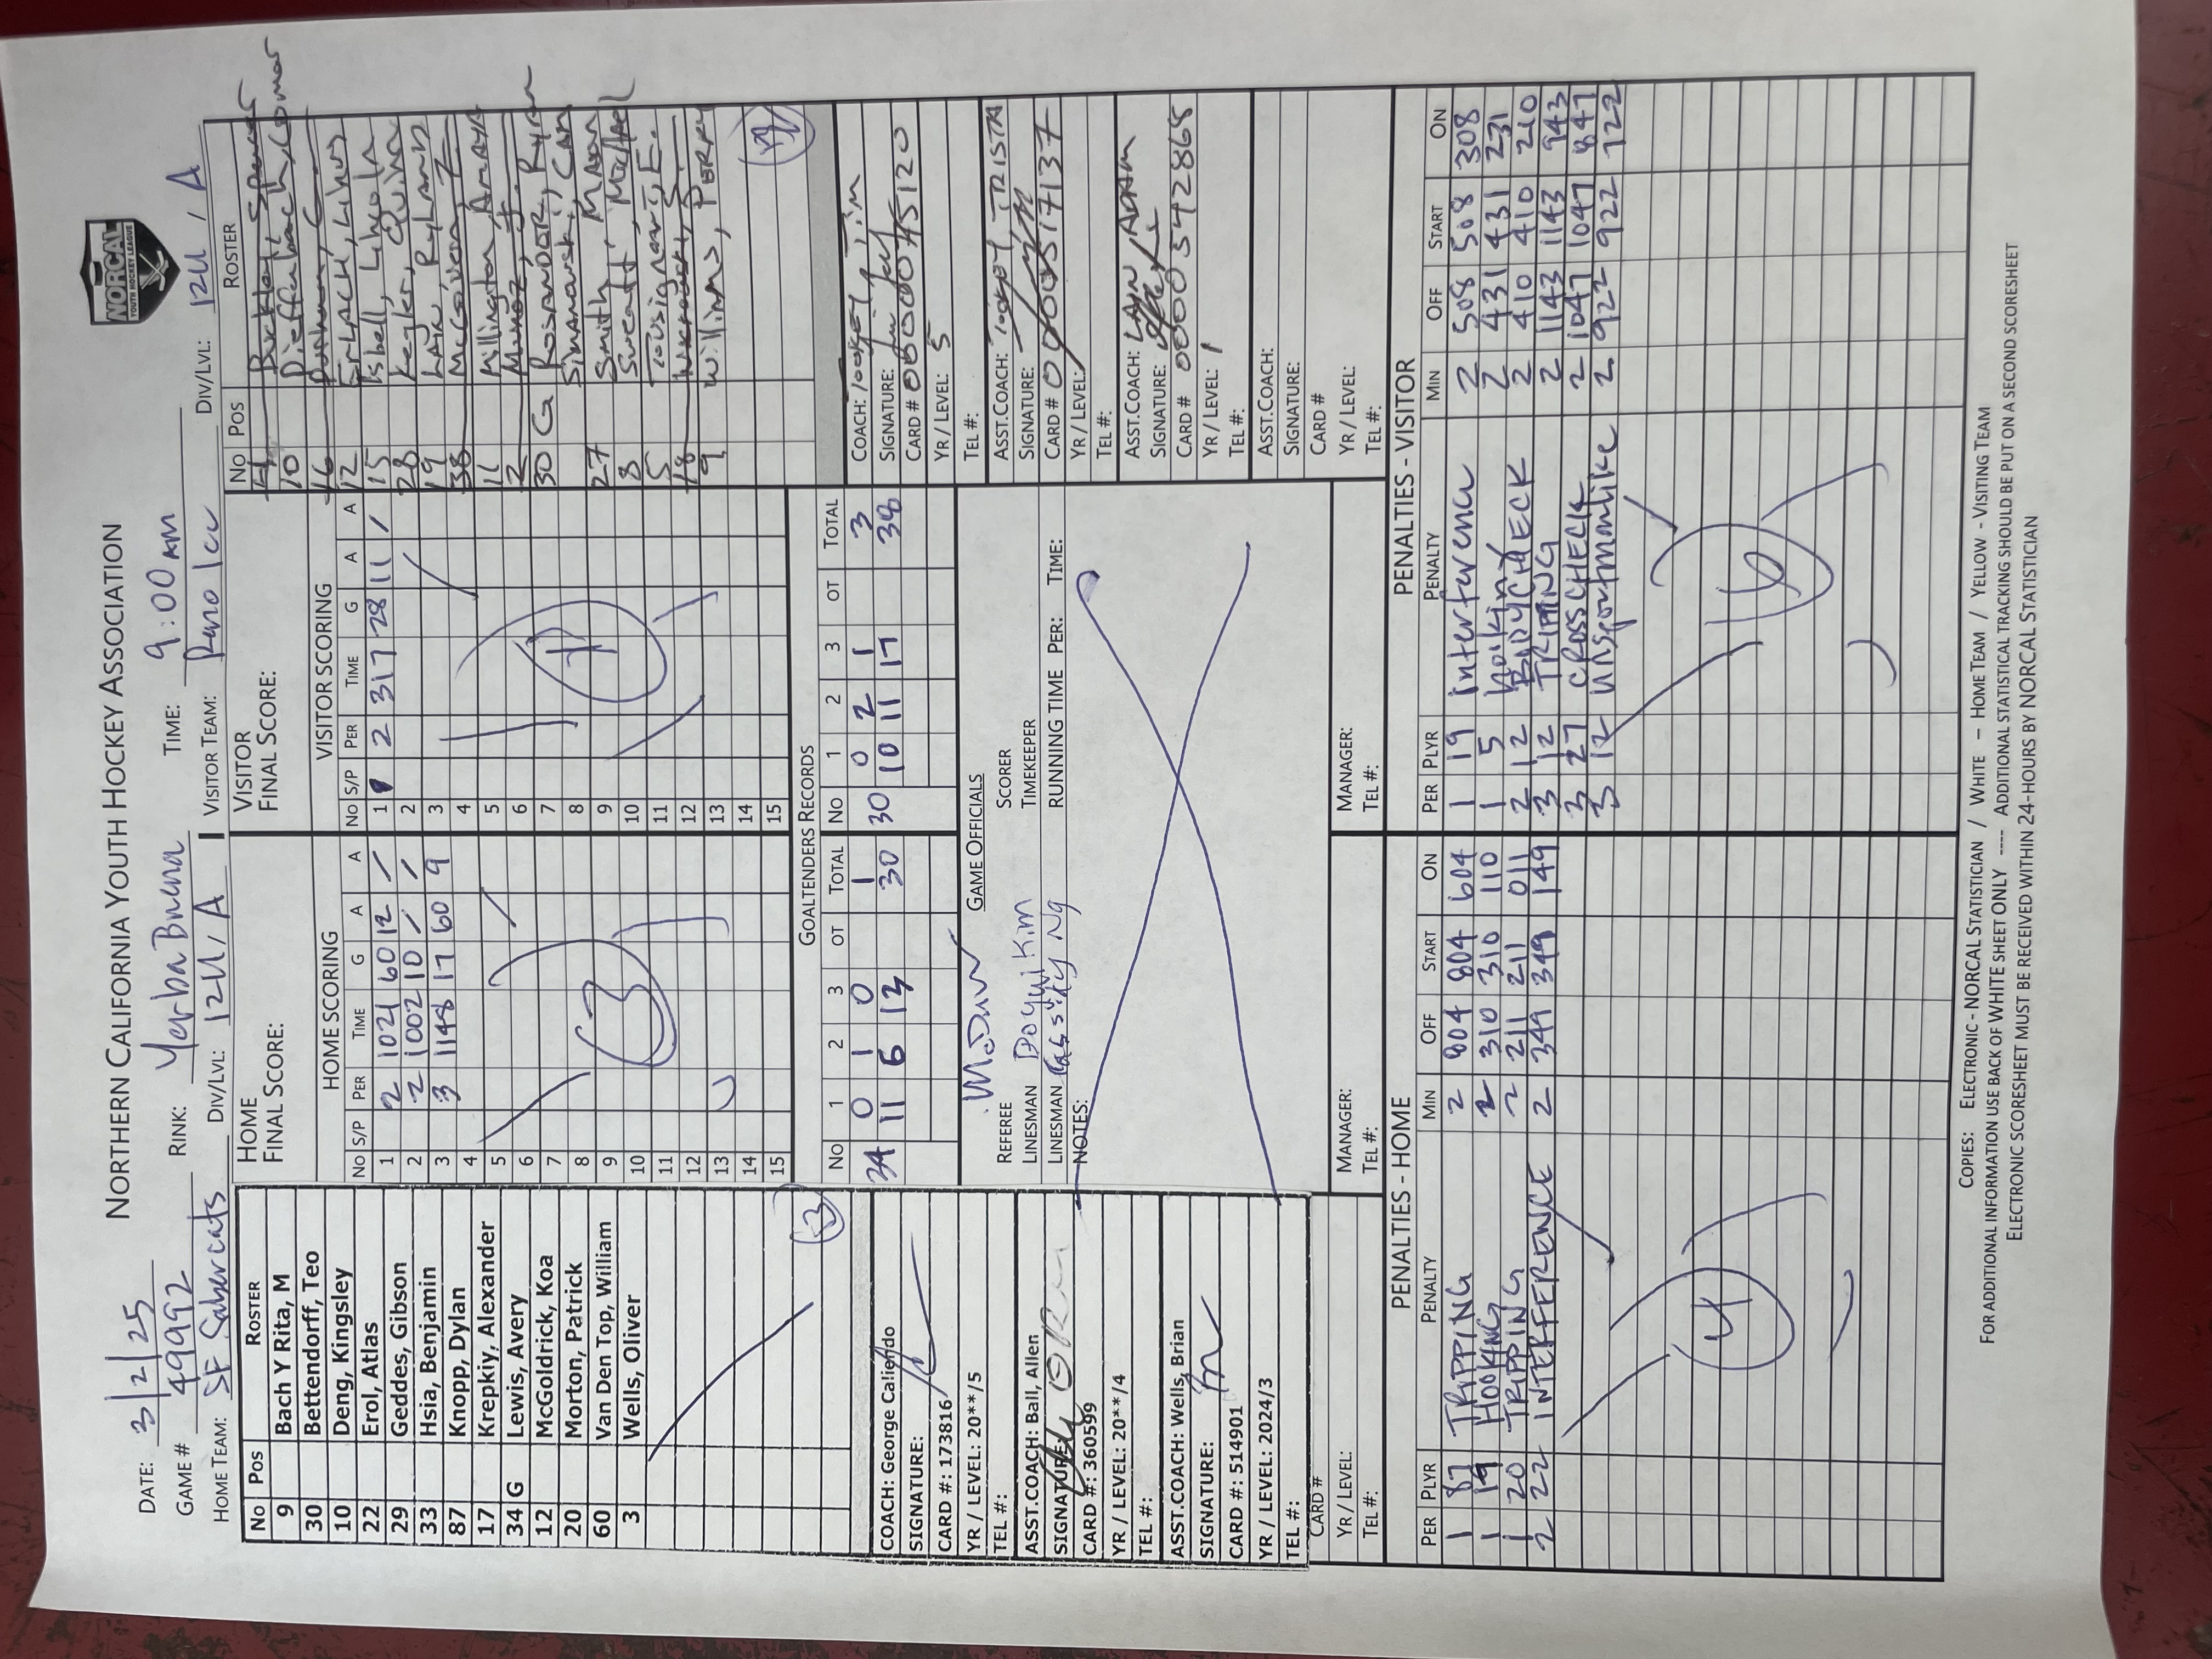 NORCAL
YOUTH HOCKEY LEAGUE
NORTHERN CALIFORNIA YOUTH HOCKEY ASSOCIATION
DATE: 3/2/25
GAME # 49992 RINK: Yerba Buena TIME: 9:00 AM
HOME TEAM: SF Sabercats DIV/LVL: 12U / A VISITOR TEAM: Reno Ice DIV/LVL: 12U / A
No Pos ROSTER
9 Bach Y Rita, M
30 Bettendorff, Teo
10 Deng, Kingsley
22 Erol, Atlas
29 Geddes, Gibson
33 Hsia, Benjamin
87 Knopp, Dylan
17 Krepkiy, Alexander
34 G Lewis, Avery
12 McGoldrick, Koa
20 Morton, Patrick
60 Van Den Top, William
3 Wells, Oliver
13
COACH: George Caliendo
SIGNATURE:
CARD #: 173816
YR / LEVEL: 20**/5
TEL #:
ASST.COACH: Ball, Allen
SIGNATURE:
CARD #: 360599
YR / LEVEL: 20**/4
TEL #:
ASST.COACH: Wells, Brian
SIGNATURE:
CARD #: 514901
YR / LEVEL: 2024/3
TEL #:
CARD #
YR / LEVEL:
TEL #:
HOME
FINAL SCORE:
HOME SCORING
No S/P PER TIME G A A
1 2 1021 60 12 /
2 2 1002 10 / /
3 3 1148 17 60 9
4
5
6
7
8
9
10
11
12
13
14
15
3
VISITOR
FINAL SCORE:
VISITOR SCORING
No S/P PER TIME G A A
1 2 317 28 11 /
2
3
4
5
6
7
8
9
10
11
12
13
14
15
GOALTENDERS RECORDS
NO 1 2 3 OT TOTAL NO 1 2 3 OT TOTAL
34 0 1 0 1 30 0 2 1 3
11 6 13 30 10 11 17 38
GAME OFFICIALS
REFEREE SCORER
LINESMAN Doyui Kim TIMEKEEPER
LINESMAN Cassidy Ng RUNNING TIME PER: TIME:
NOTES:
MANAGER: MANAGER:
TEL #: TEL #:
No Pos ROSTER
Buckley, Spencer
10 Dieffenbach, Conor
16
12 Erlach, Linus
15 Isbell, Lincoln
28 Kegler, Quinn
19 Lain, Rylan
38 McGovern, Z
11 Killington,
2 Munoz, J.
30 G Rosandor, Ryan
Simanowski, Cam
27 Smith, Mason
8 Sweatt, Michael
5 Tousignant, E.
18
9 Williams, Perry
COACH: Tookey, Tim
SIGNATURE:
CARD # 000000AS120
YR / LEVEL: 5
TEL #:
ASST.COACH: Tookey, TRISTA
SIGNATURE:
CARD # 0000517137
YR / LEVEL:
TEL #:
ASST.COACH: LAIN, ADAM
SIGNATURE:
CARD # 0000 5428 65
YR / LEVEL: 1
TEL #:
ASST.COACH:
SIGNATURE:
CARD #
YR / LEVEL:
TEL #:
PENALTIES - HOME
PER PLYR PENALTY MIN OFF START ON
1 87 TRIPPING 2 804 804 604
1 19 HOOKING 2 310 310 110
1 20 TRIPPING 2 211 211 011
2 22 INTERFERENCE 2 349 349 149
4
PENALTIES - VISITOR
PER PLYR PENALTY MIN OFF START ON
1 19 interference 2 508 508 308
1 5 hooking 2 431 431 231
2 12 BODYCHECK 2 410 410 210
3 12 TRIPPING 2 1143 1143 943
3 27 CROSSCHECK 2 1047 1047 847
3 12 unsportmanlike 2 922 922 722
6
COPIES: ELECTRONIC - NORCAL STATISTICIAN / WHITE – HOME TEAM / YELLOW - VISITING TEAM
FOR ADDITIONAL INFORMATION USE BACK OF WHITE SHEET ONLY ---- ADDITIONAL STATISTICAL TRACKING SHOULD BE PUT ON A SECOND SCORESHEET
ELECTRONIC SCORESHEET MUST BE RECEIVED WITHIN 24-HOURS BY NORCAL STATISTICIAN